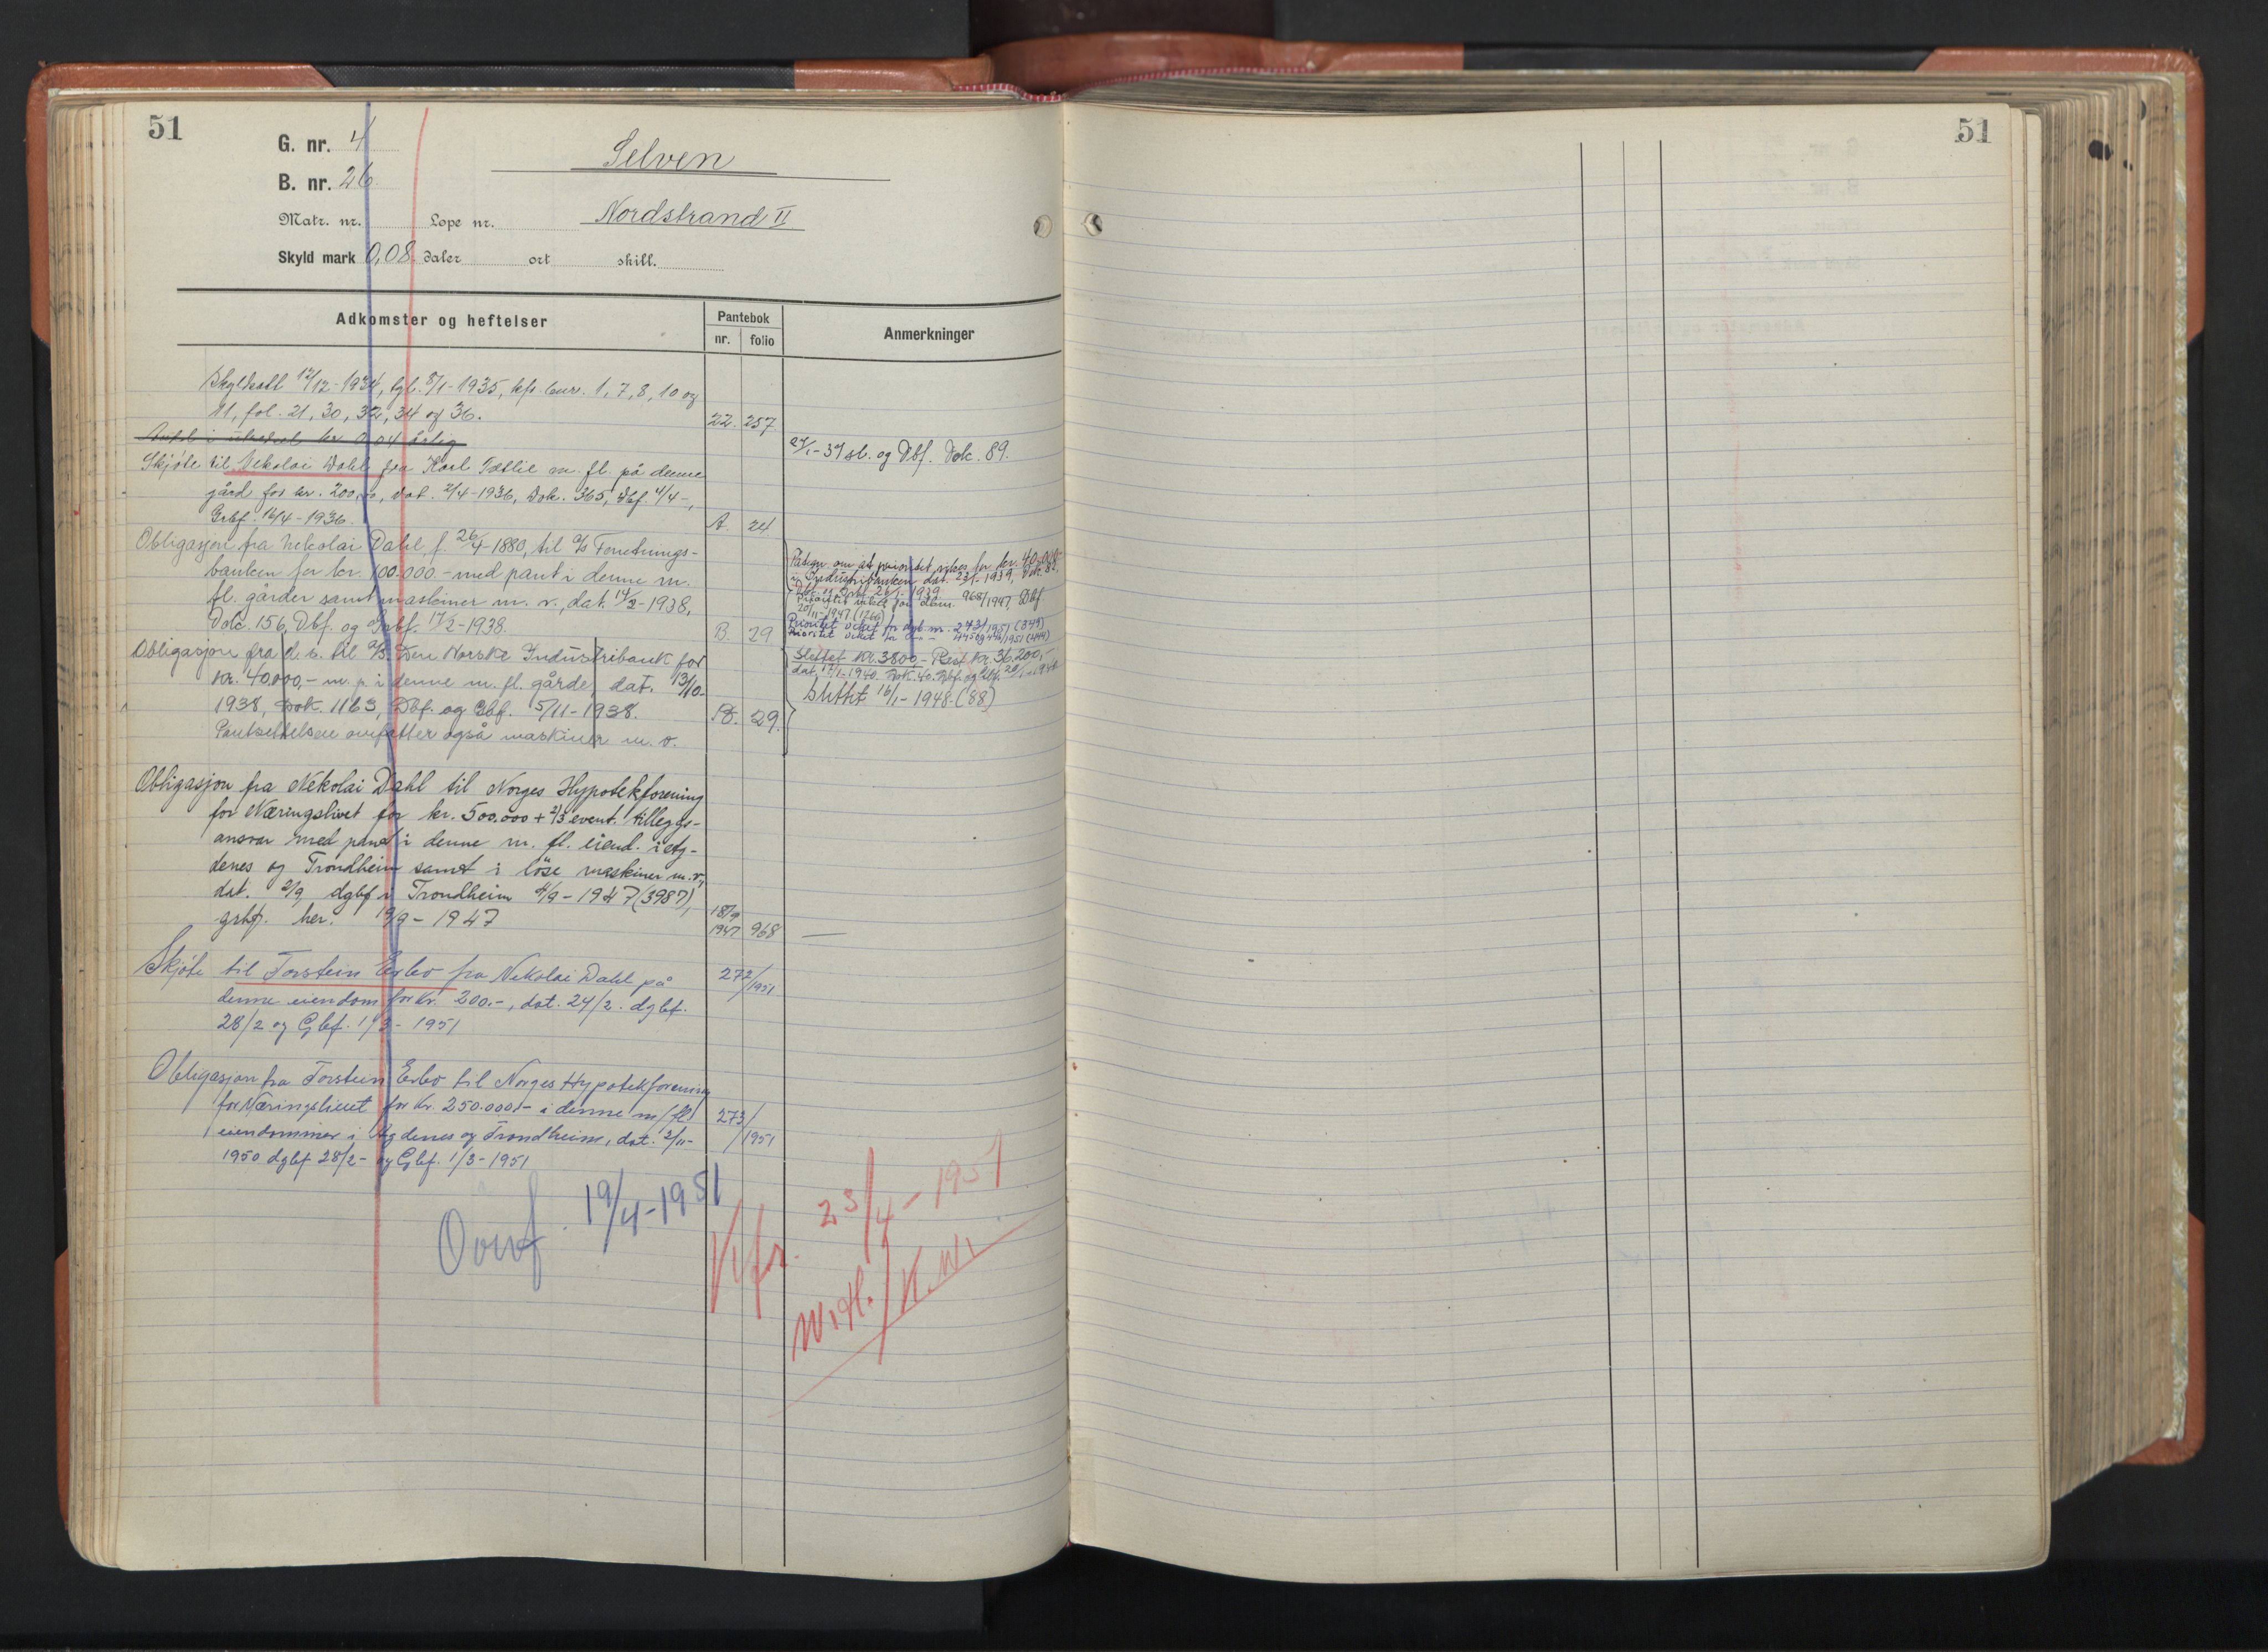 51
G. nr. 4
Selven
B. nr. 26
Matr. nr. Lope nr.
Nordstrand II
Skyld mark 0,08. daler ort skill.
Adkomster og heftelser
Pantebok
nr. folio
Anmerkninger
Skylddelt 12/12-1934, tgl. 8/1-1935, kfr. bnr. 1, 7, 8, 10 og
11, fol. 21, 30, 32, 34 og 36.
22. 257.
kr 0,04 årlig
27/1-37 sl. og Dbf. Dok. 89.
Skjøte til Nekolai Dahl fra Karl m. fl. på denne
gård for kr. 200,00, dat. 2/4-1936, Dok. 365, Dbf. 4/4-,
Grbf. 16/4-1936.
A. 24
Obligasjon fra Nekolai Dahl, f. 26/4-1880, til A/S Forretnings-
banken for kr. 100.000.- med pant i denne m.
fl. gårder samt maskiner m. v., dat. 14/2-1938,
Dok. 156, Dbf. og Grbf. 17/2-1938.
B. 29
Påtegn. om at prioritet viker for kr. 40.000
i Industribanken dat. 23/1-1939, Dok. 82.
Dbf. og Grbf. 26/1-1939
Prioritet veket for 968/1947, Dbf
20/11-1947 (1266)
Prioritet veket for dgb. nr. 273/1951 (349)
Prioritet veket for 1951
Obligasjon fra d. s. til A/S Den Norske Industribank for
kr. 40.000,- m. p. i denne m. fl. gårde, dat. 13/10-
1938, Dok. 1163, Dbf. og Gbf. 5/11-1938.
Pantsettelsen omfatter også maskiner m. v.
B. 29.
Slettet kr. 3800,- Rest kr. 36.200,-
dat. 17/1-1940. Dok. 40. Dbf. og Gbf. 20/1-1940
Slettet 16/1-1948. (88)
Obligasjon fra Nekolai Dahl til Norges Hypotekforening
for Næringslivet for kr. 500.000 + 2/3 event. tilleggs-
ansvar med pant i denne m. fl. eiend. i Ag-
denes og Trondheim samt i löse maskiner m. v.,
dat. 2/9, dgbf. i Trondheim 4/9-1947 (3987),
grbf. her. 19/9-1947
18/9
1947 968
Skjöte til Torstein Erbo fra Nekolai Dahl på
denne eiendom for kr. 200.-, dat. 24/2. dgbf.
28/2 og Gbf. 1/3-1951
272/1951
Obligasjon fra Torstein Erbo til Norges Hypotekforening
for Næringslivet for kr. 250.000.- i denne m/fl.
eiendommer i Agdenes og Trondheim, dat. 2/11-
1950 dgbf. 28/2- og Gbf. 1/3-1951
273/1951
Overf. 19/4-1951
Kfr. 23/4-1951
51